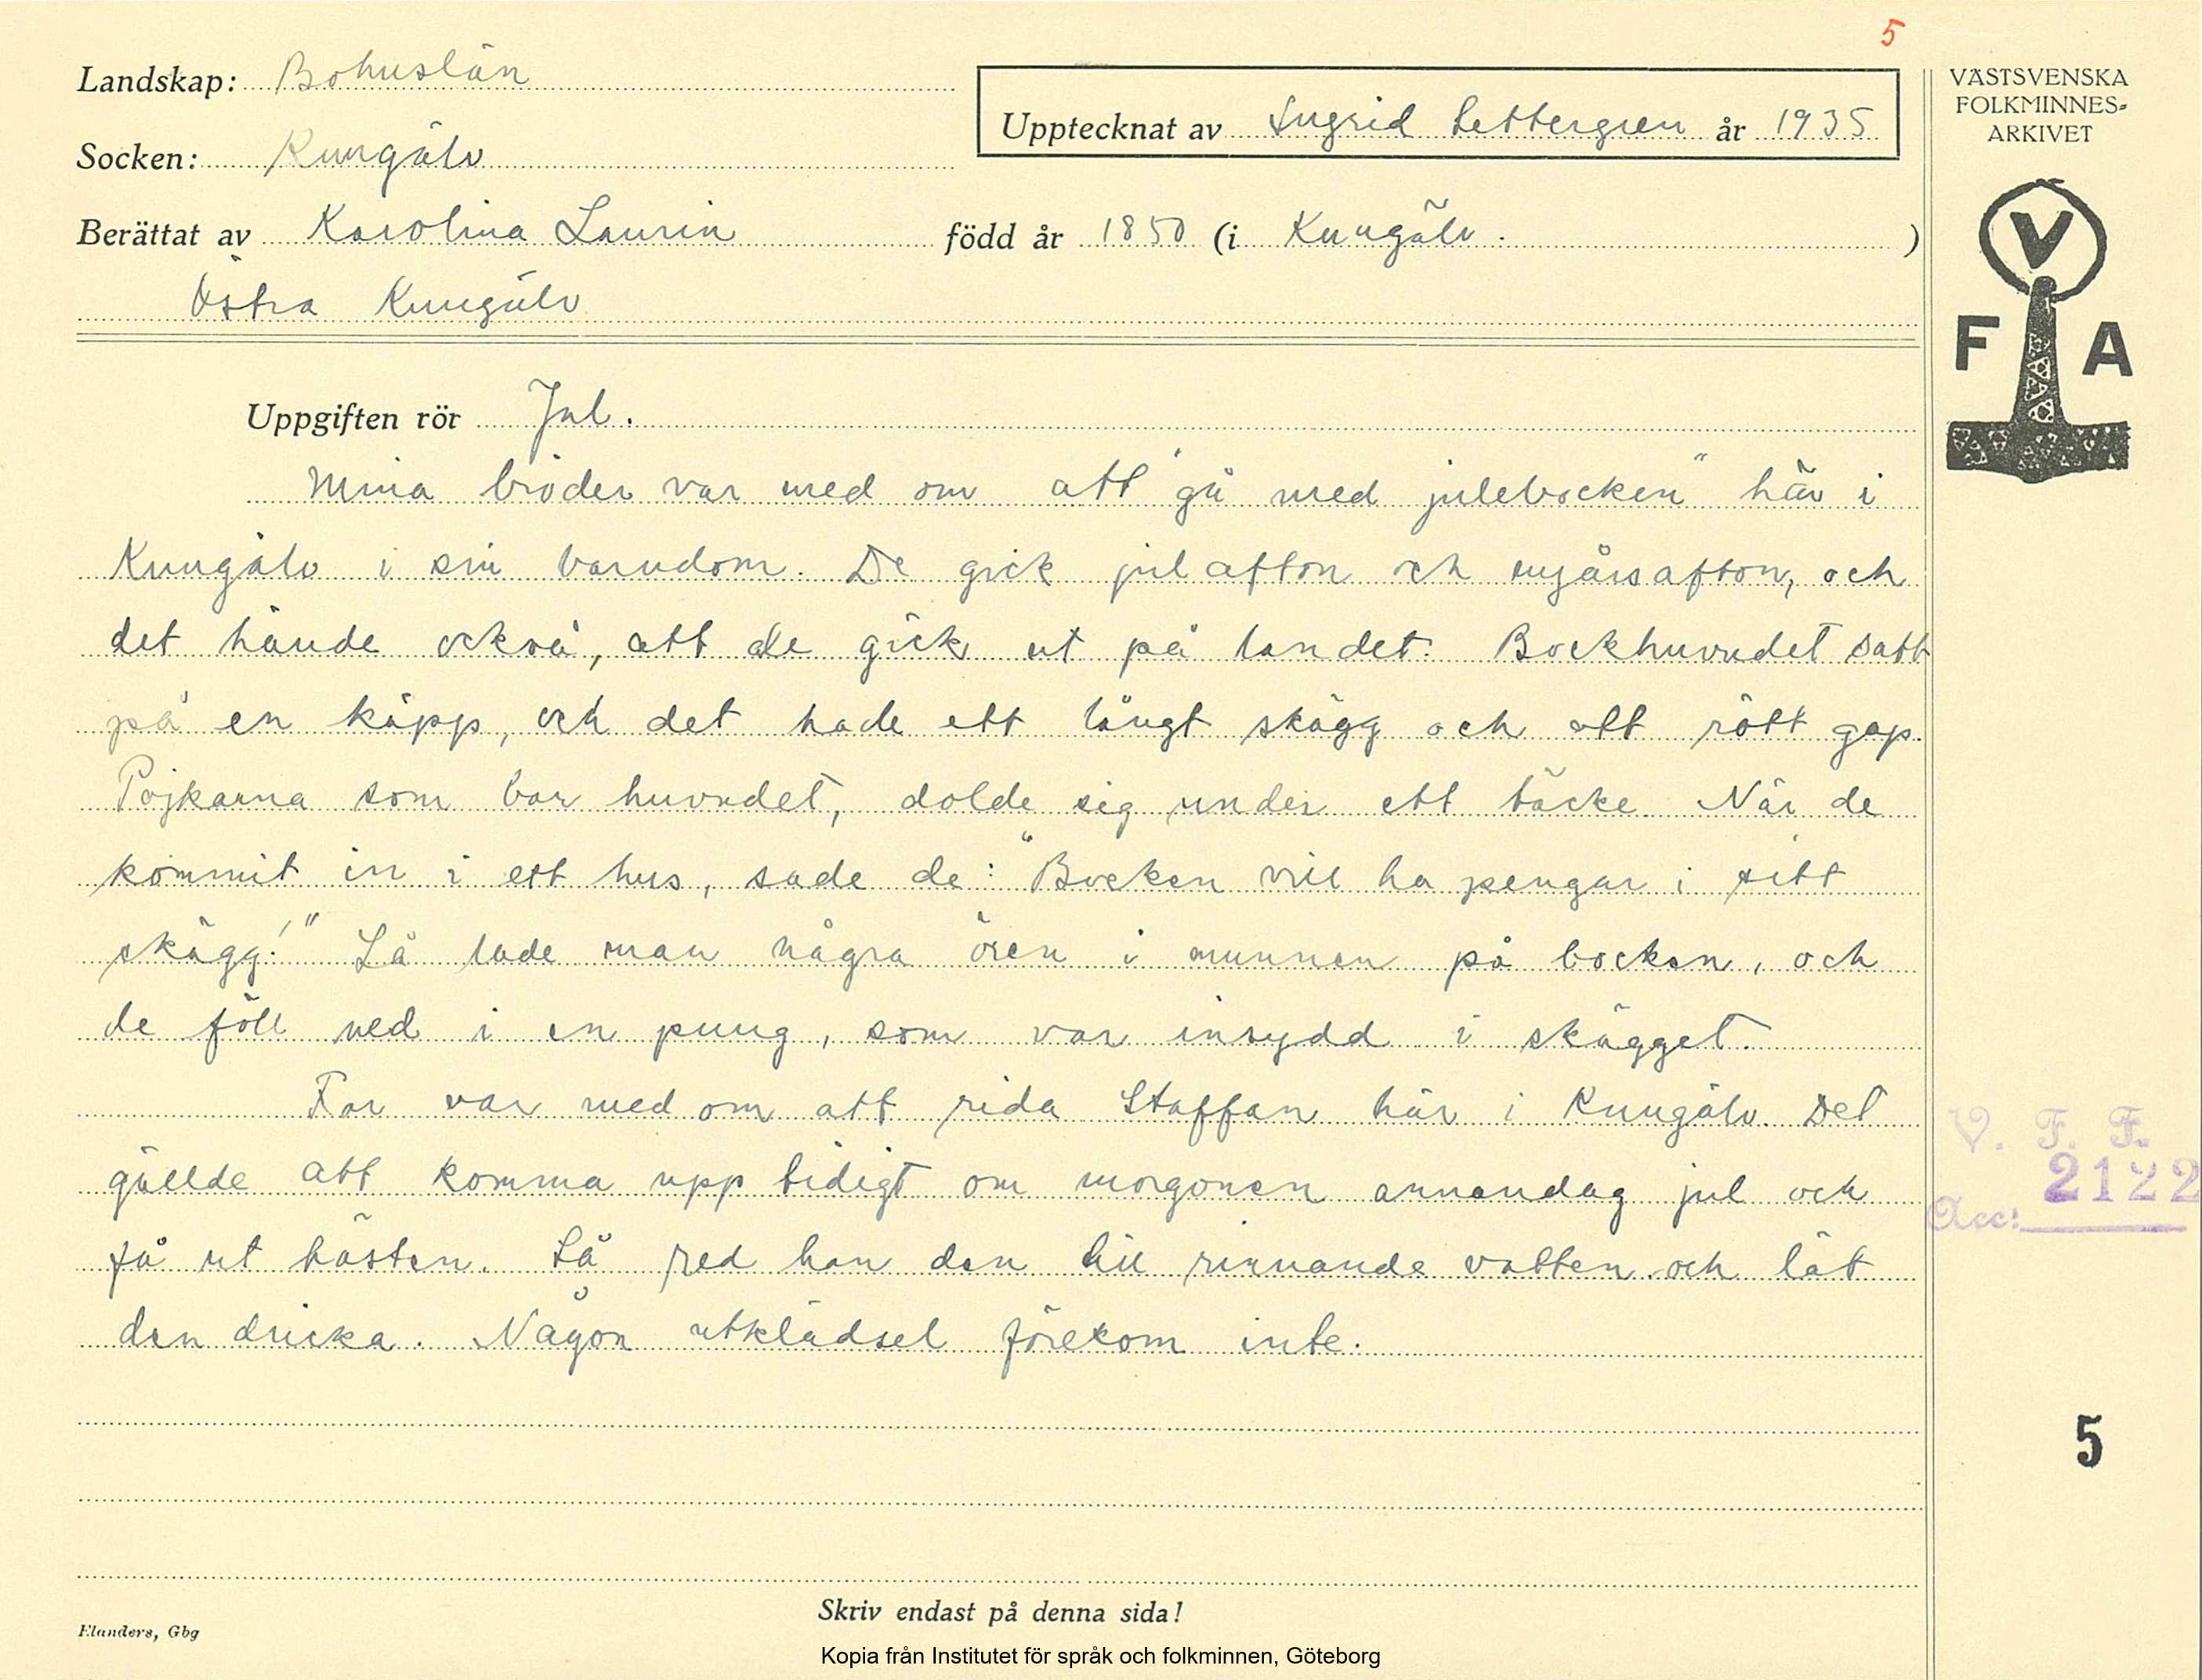 5
Landskap: Bohuslän
Socken: Kungälv
Upptecknat av Ingrid Settergren år 1935
Berättat av Karolina Laurin född år 1850 (i Kungälv. )
Östra Kungälv
Uppgiften rör Jul.
Mina bröder var med om att "gå med julebocken" här i
Kungälv i sin barndom. De gick julafton och nyårsafton, och
det hände också, att de gick ut på landet. Bockhuvudet satt
på en käpp, och det hade ett långt skägg och ett rött gap.
Pojkarna som bar huvudet, dolde sig under ett täcke. När de
kommit in i ett hus, sade de: "Bocken vill ha pengar i sitt
skägg!" Så lade man några ören i munnen på bocken, och
de föll ned i en pung, som var insydd i skägget.
Far var med om att rida Staffan här i Kungälv. Det
gällde att komma upp tidigt om morgonen annandag jul och
få ut hästen. Så red han den till rinnande vatten och lät
den dricka. Någon utklädsel förekom inte.
Skriv endast på denna sida!
Elanders, Gbg
Kopia från Institutet för språk och folkminnen, Göteborg
VÄSTSVENSKA
FOLKMINNES-
ARKIVET
V
F A
V. F. F.
Acc: 2122
5